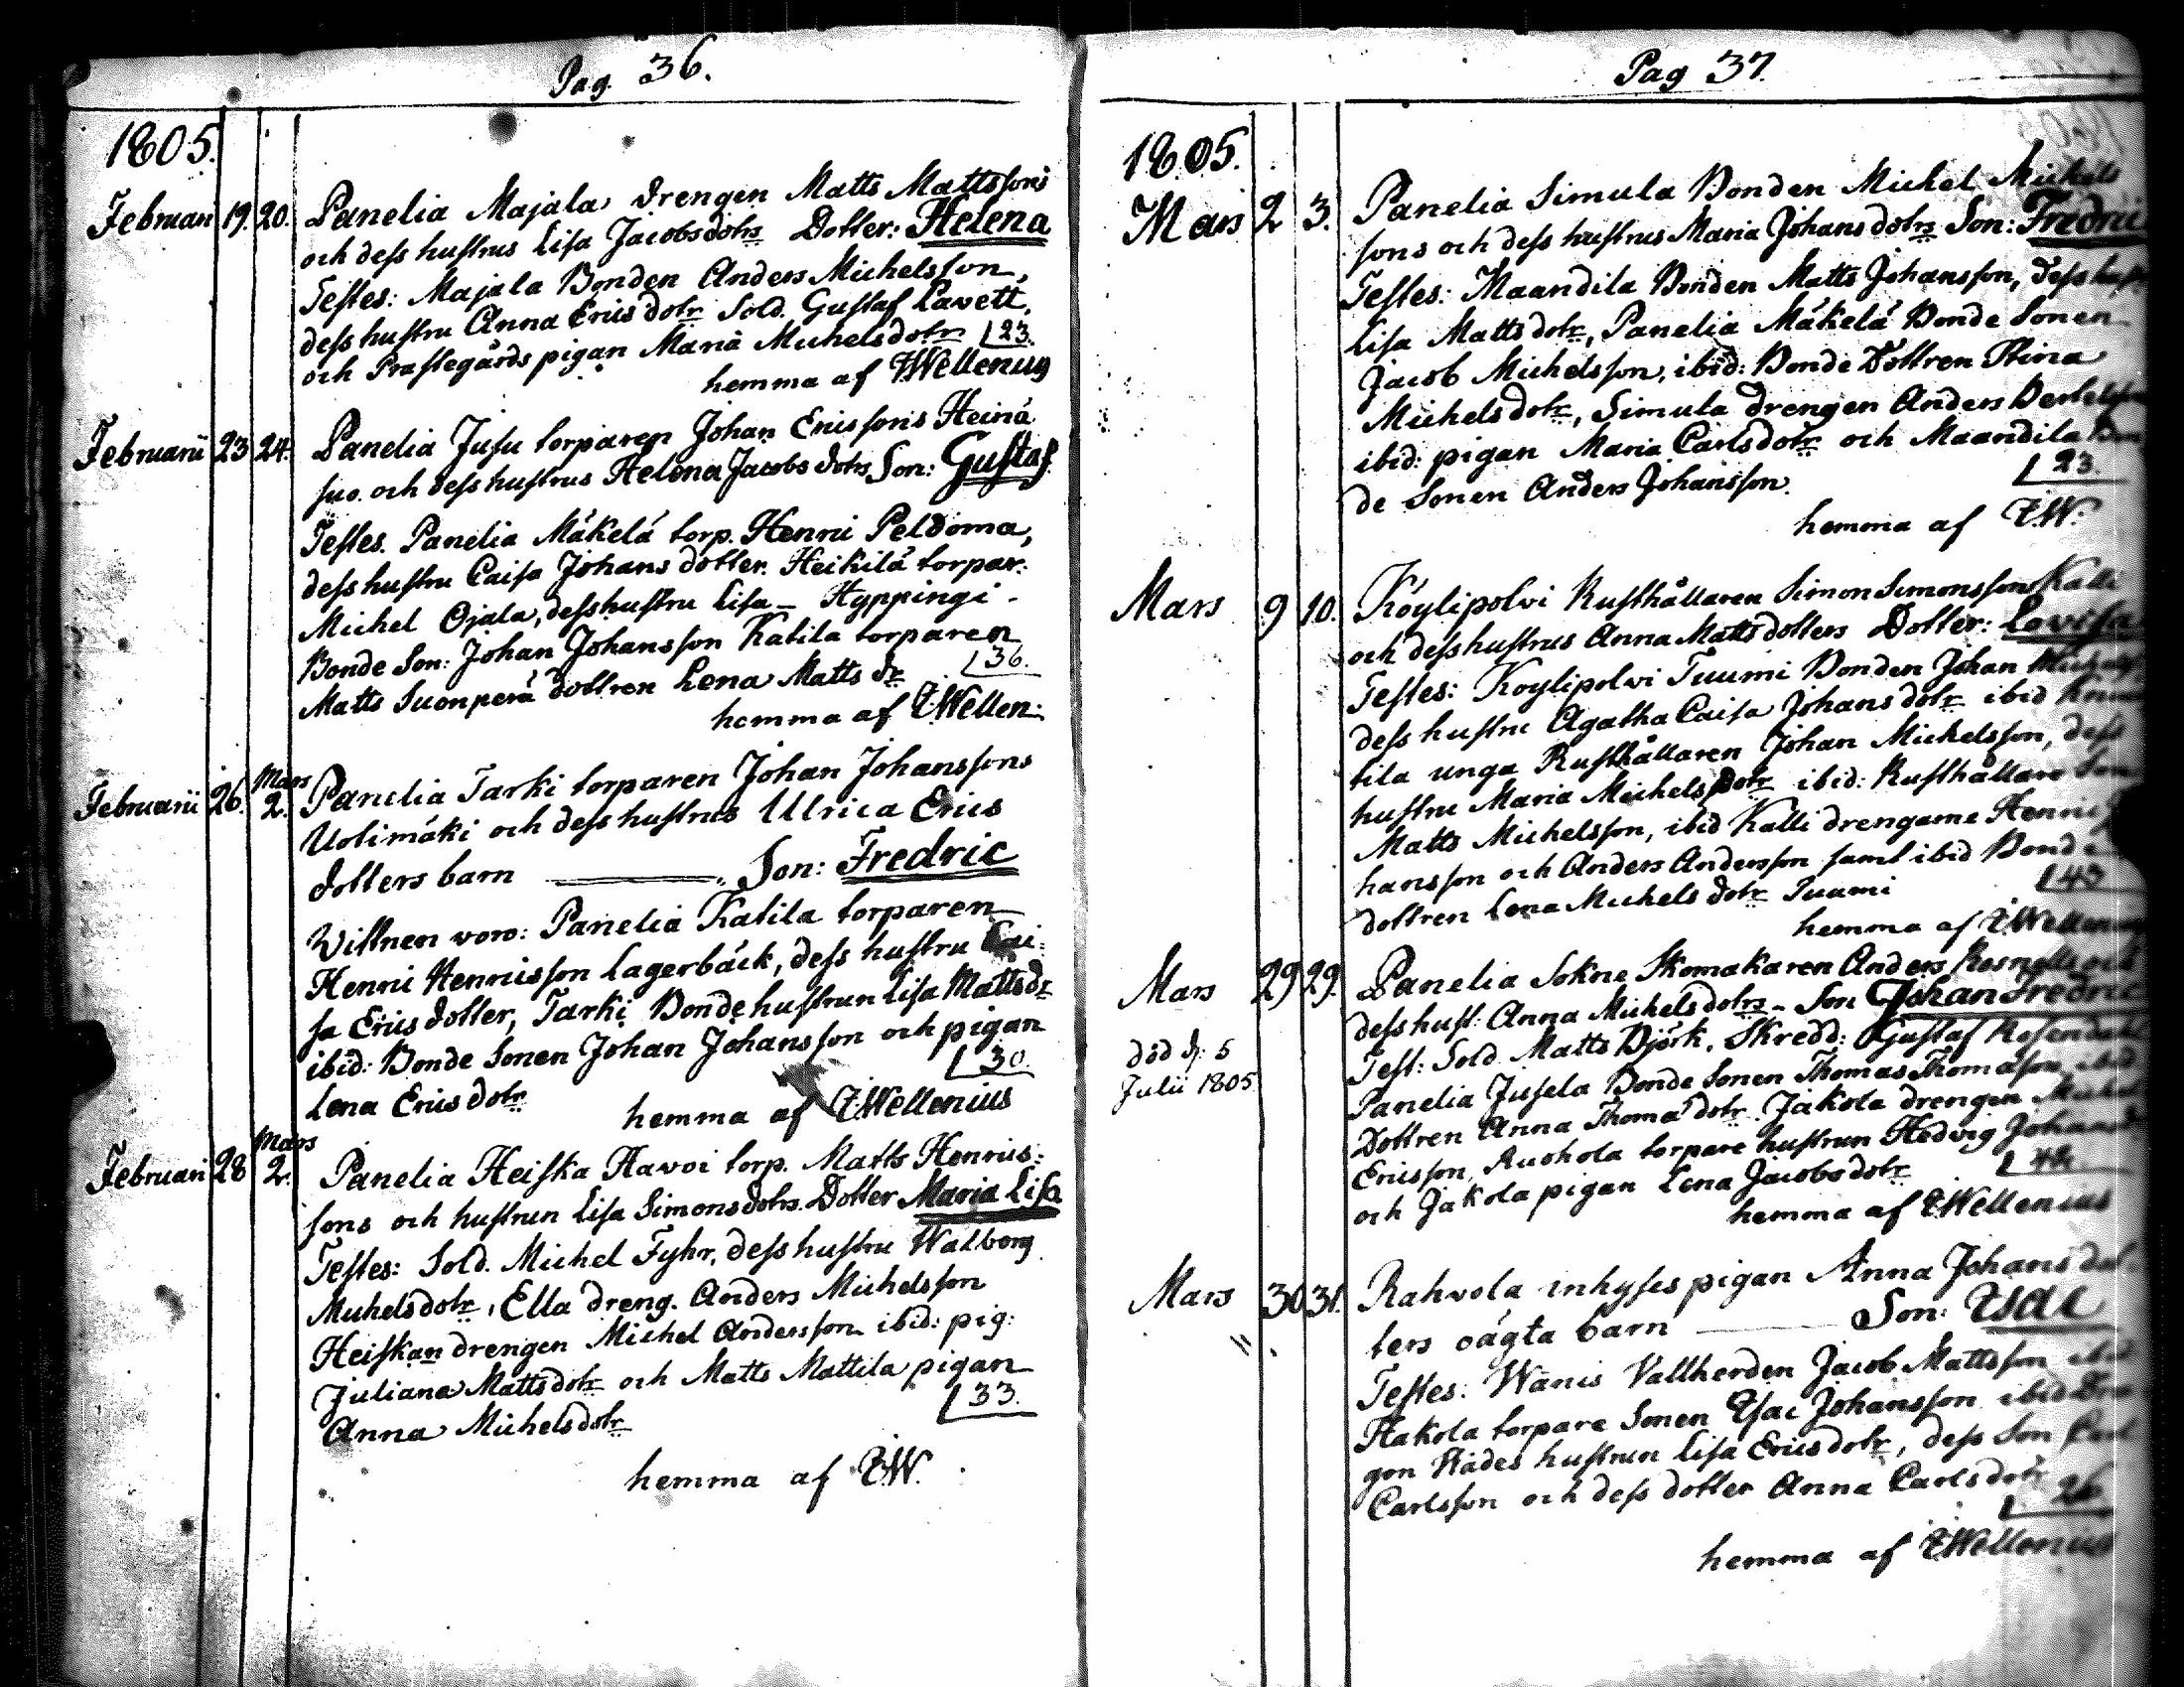 Pag. 36.
1805.
Februari 19. 20. Panelia Majala drengen Matts Mattssons
och dess hustrus Lisa Jacobsdotrs Dotter: Helena
Testes: Majala Bonden Anders Michelsson,
dess hustru Anna Erics dotr Sold. Gustaf Lavett,
och Prästegårds pigan Maria Michelsdotr 23.
hemma af Wellenius
Februarii 23 24. Panelia Jusu torparen Johan Ericssons Heinä
suo. och dess hustrus Helena Jacobs dotrs Son: Gustaf.
Testes. Panelia Mäkelä torp. Henric Peldoma,
dess hustru Caisa Johans dotter. Heikilä torpar:
Michel Ojala, dess hustru Lisa - Hyppingi -
Bonde Son: Johan Johansson Katila torparen
Matts Suonperä dottren Lena Matts dr 36.
hemma af Wellen:
Februarii 26. Mars 2. Panelia Tarki torparen Johan Johanssons
Uolimäki och dess hustrus Ulrica Erics
dotters barn Son: Fredric
Vittnen voro: Panelia Katila torparen
Henric Henricsson Lagerbäck, dess hustru Cai:
sa Erics dotter, Tarki Bonde hustrun Lisa Mattsdr
ibid: Bonde Sonen Johan Johansson och pigan
Lena Erics dotr 30.
hemma af Wellenius
Februari 28 Mars 2. Panelia Heiska Havoi torp. Matts Henrics:
sons och hustrun Lisa Simonsdotrs. Dotter Maria Lisa
Testes: Sold. Michel Fyhr, dess hustru Walborg
Michelsdotr, Ella dreng. Anders Michelsson
Heiskan drengen Michel Andersson ibid: pig:
Juliana Mattsdotr och Matts Mattila pigan
Anna Michelsdotr 33.
hemma af W.
Pag 37.
1805.
Mars 2 3. Panelia Simula Bonden Michel Michels
sons och dess hustrus Maria Johans dotrs Son: Fredric
Testes: Maandila Bonden Matts Johansson, dess
Lisa Matts dotr, Panelia Mäkelä Bonde Sonen
Jacob Michelsson, ibid: Bonde Dottren Stina
Michelsdotr, Simula drengen Anders
ibid: pigan Maria Carlsdotr och Maandila Bon
de Sonen Anders Johansson. 23.
hemma af W.
Mars 9 10. Köylipolvi Rusthållaren Simon Simonsson Kalli
och dess hustrus Anna Matts dotters Dotter: Lovisa
Testes: Köylipolvi Tuumi Bonden Johan
dess hustru Agatha Caisa Johans dotr ibid
tila unga Rusthållaren Johan Michelsson, dess
hustru Maria Michelsdotr ibid: Rusthållare Son
Matts Michelsson, ibid Kalli drengarne Henric
hansson och Anders Andersson samt ibid Bonde
dottren Lena Michels dotr Tuumi 43
hemma af Wellenius
Mars 29 29. Panelia Sokne Skomakaren Anders
dess hust: Anna Michelsdotrs - Son Johan Fredric
död d: 5
Julii 1805
Test: Sold. Matts Björk. Skredd: Gustaf Rosendahl
Panelia Jusela Bonde Sonen Thomas Thomasson ibid
Dottren Anna Thomadotr. Jakola drengen Michel
Ericsson, Ruohola torpare hustrun Hedvig Johans
och Jakola pigan Lena Jacobsdotr
hemma af Wellenius
Mars 30 31. Rahvola inhyses pigan Anna Johans dot
ters oägta barn Son: Isac
Testes: Wanis Vallherden Jacob Mattsson
Hakola torpare Sonen Isac Johansson ibid Dra
gon Rädes hustrun Lisa Ericsdotr, dess Son Carl
Carlsson och dess dotter Anna Carlsdotr 26
hemma af Wellenius